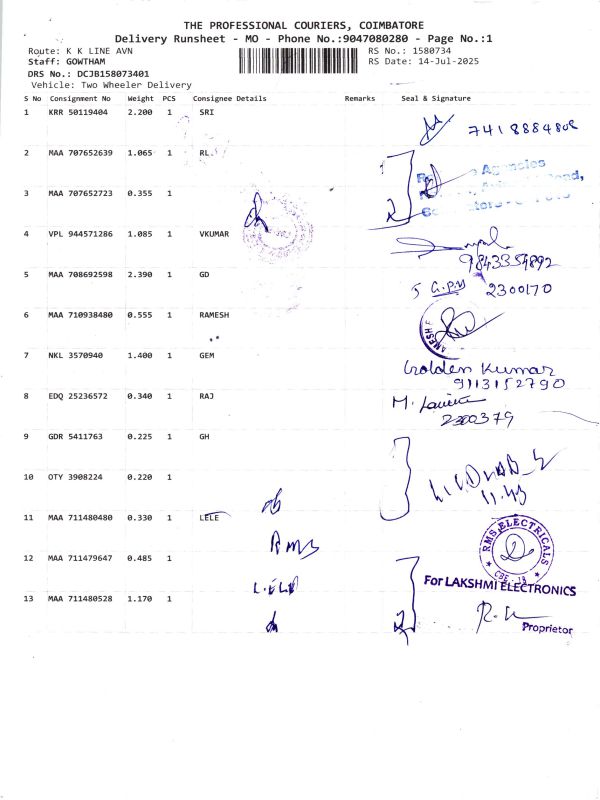 THE PROFESSIONAL COURIERS, COIMBATORE
Delivery Runsheet - MO - Phone No.:9047080280 - Page No.:1
Route: K K LINE AVN RS No.: 1580734
Staff: GOWTHAM RS Date: 14-Jul-2025
DRS No.: DCJB158073401
Vehicle: Two Wheeler Delivery
S No Consignment No Weight PCS Consignee Details Remarks Seal & Signature
1 KRR 50119404 2.200 1 SRI
7418884808
2 MAA 707652639 1.065 1 RL.
Agencies
3 MAA 707652723 0.355 1
4 VPL 944571286 1.085 1 VKUMAR
9843354892
5 MAA 708692598 2.390 1 GD
2300170
6 MAA 710938480 0.555 1 RAMESH
7 NKL 3570940 1.400 1 GEM
Golden Kumar
9113152790
8 EDQ 25236572 0.340 1 RAJ
M.
2300379
9 GDR 5411763 0.225 1 GH
10 OTY 3908224 0.220 1
11.43
11 MAA 711480480 0.330 1 LELE
RMS
RMS ELECTRICALS
CBE - 18
12 MAA 711479647 0.485 1
L.ELE
For LAKSHMI ELECTRONICS
13 MAA 711480528 1.170 1
Proprietor